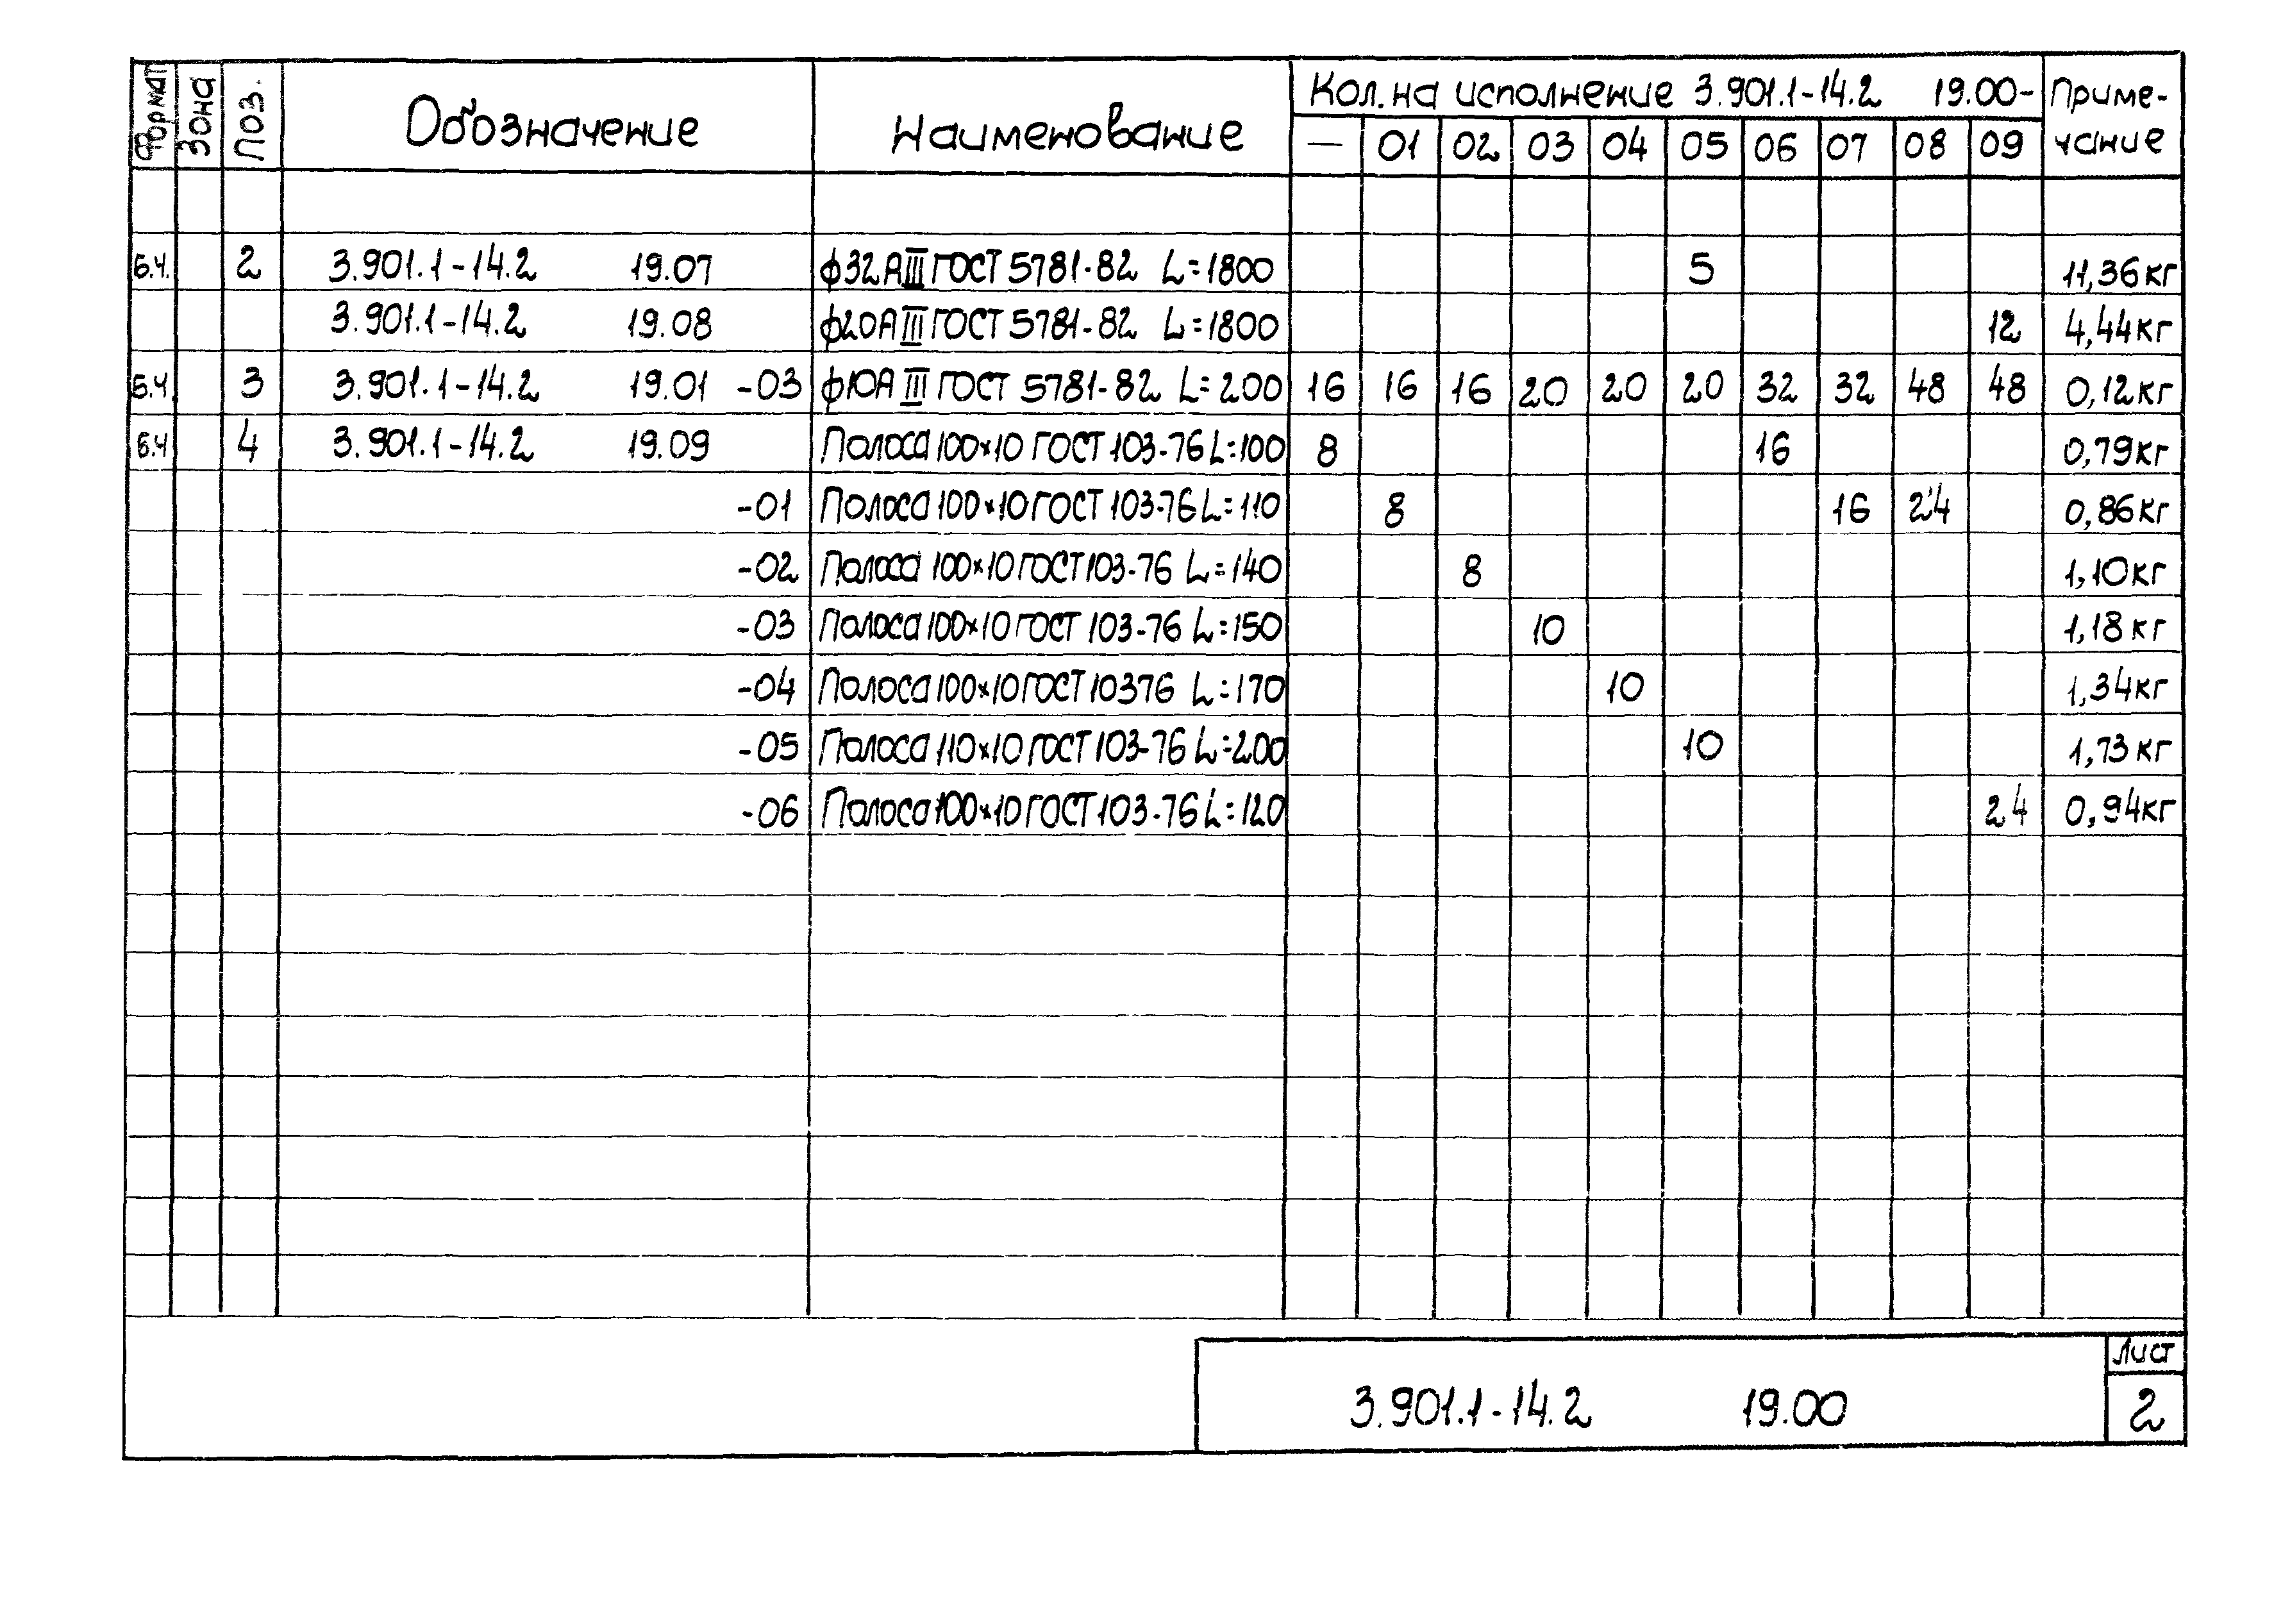 Формат Зона Поз. Обозначение Наименование Кол. на исполнение 3.901.1-14.2 19.00- Приме-чание
— 01 02 03 04 05 06 07 08 09
Б.Ч. 2 3.901.1-14.2 19.07 ф32АIII ГОСТ 5781-82 L=1800 5 11,36кг
3.901.1-14.2 19.08 ф20АIII ГОСТ 5781-82 L=1800 12 4,44кг
Б.Ч 3 3.901.1-14.2 19.01 -03 ф10АIII ГОСТ 5781-82 L=200 16 16 16 20 20 20 32 32 48 48 0,12кг
Б.Ч 4 3.901.1-14.2 19.09 Полоса 100×10 ГОСТ 103-76 L=100 8 16 0,79кг
-01 Полоса 100×10 ГОСТ 103-76 L=110 8 16 24 0,86кг
-02 Полоса 100×10 ГОСТ 103-76 L=140 8 1,10кг
-03 Полоса 100×10 ГОСТ 103-76 L=150 10 1,18кг
-04 Полоса 100×10 ГОСТ 10376 L=170 10 1,34кг
-05 Полоса 110×10 ГОСТ 103-76 L=200 10 1,73кг
-06 Полоса 100×10 ГОСТ 103-76 L=120 24 0,94кг
3.901.1-14.2 19.00
Лист
2